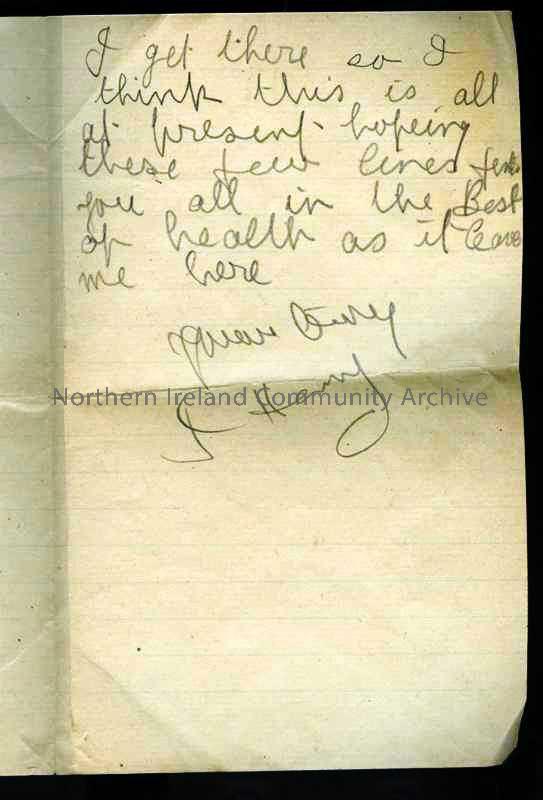 I get there so I
think this is all
at present hopeing
these few lines
you all in the Best
of health as it leave
me here
Northern Ireland Community Archive